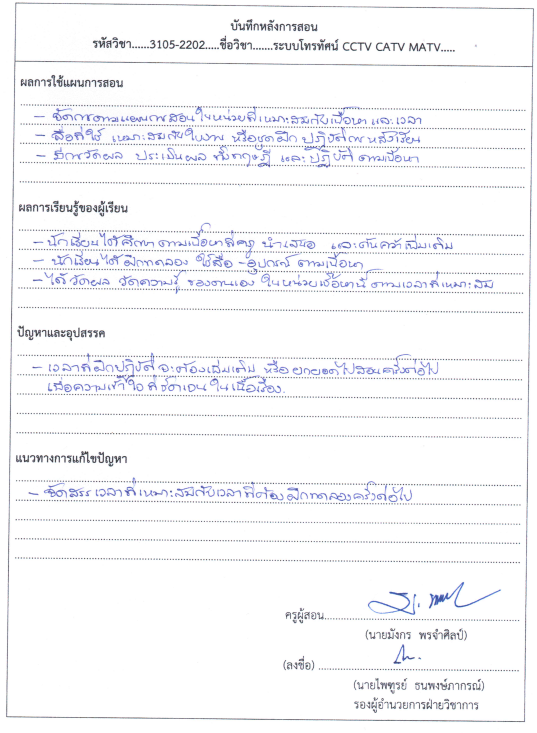 บันทึกหลังการสอน
รหัสวิชา......3105-2202.....ชื่อวิชา.......ระบบโทรทัศน์ CCTV CATV MATV.....
ผลการใช้แผนการสอน
- จัดการตามแผนการสอนในหน่วยที่เหมาะสมกับเนื้อหา และเวลา
- สื่อที่ใช้ เหมาะสมกับใบงาน หรือชุดฝึก ปฏิบัติการหลังเรียน
- มีการวัดผล ประเมินผล ทั้งทฤษฎี และปฏิบัติ ตามเนื้อหา
ผลการเรียนรู้ของผู้เรียน
- นักเรียนได้ศึกษาตามเนื้อหาที่ครู นำเสนอ และค้นคว้าเพิ่มเติม
- นักเรียนได้ฝึกทดลอง ใช้สื่อ-อุปกรณ์ ตามเนื้อหา
- ได้วัดผล วัดความรู้ ของตนเอง ในหน่วยเนื้อหานี้ ตามเวลาที่เหมาะสม
ปัญหาและอุปสรรค
- เวลาที่ฝึกปฏิบัติจะต้องเพิ่มเติม หรือยกยอดไปสอนครั้งต่อไป
เพื่อความเข้าใจที่ชัดเจนในเนื้อเรื่อง.
แนวทางการแก้ไขปัญหา
- จัดสรรเวลาที่เหมาะสมกับเวลาที่ต้องฝึกทดลองครั้งต่อไป
ครูผู้สอน
(นายมังกร พรจำศิลป์)
(ลงชื่อ)
(นายไพฑูรย์ ธนพงษ์ภากรณ์)
รองผู้อำนวยการฝ่ายวิชาการ